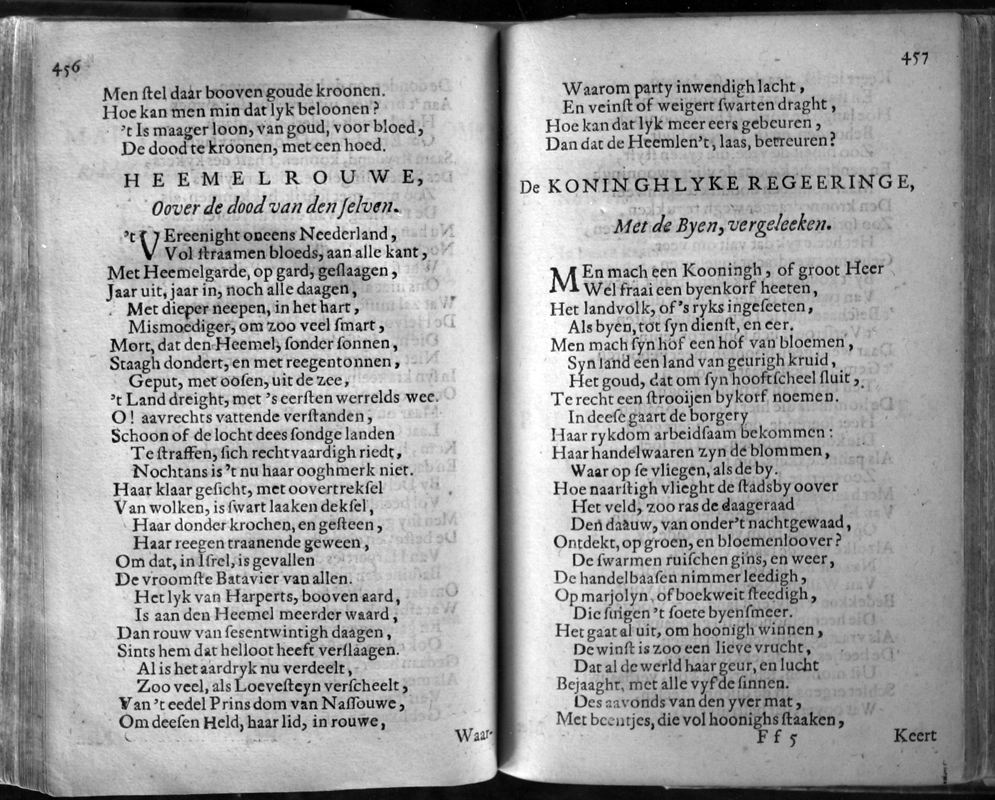 456
Men ſtel daar booven goude kroonen.
Hoe kan men min dat lyk beloonen?
't Is maager loon, van goud, voor bloed,
De dood te kroonen, met een hoed.
HEEMELROUWE,
Oover de dood van den ſelven.
't VEreenight oneens Neederland,
Vol ſtraamen bloeds, aan alle kant,
Met Heemelgarde, op gard, geſlaagen,
Jaar uit, jaar in, noch alle daagen,
Met dieper neepen, in het hart,
Mismoediger, om zoo veel ſmart,
Mort, dat den Heemel, ſonder ſonnen,
Staagh dondert, en met reegentonnen,
Geput, met ooſen, uit de zee,
't Land dreight, met 's eerſten werrelds wee.
O! aavrechts vattende verſtanden,
Schoon of de locht dees ſondge landen
Te ſtraffen, ſich rechtvaardigh riedt,
Nochtans is 't nu haar ooghmerk niet.
Haar klaar geſicht, met oovertrekſel
Van wolken, is ſwart laaken dekſel,
Haar donder krochen, en geſteen,
Haar reegen traanende geween,
Om dat, in Iſrel, is gevallen
De vroomſte Batavier van allen.
Het lyk van Harperts, booven aard,
Is aan den Heemel meerder waard,
Dan rouw van ſesentwintigh daagen,
Sints hem dat helloot heeft verſlaagen.
Al is het aardryk nu verdeelt,
Zoo veel, als Loeveſteyn verſcheelt,
Van 't eedel Prinsdom van Naſſouwe,
Om deeſen Held, haar lid, in rouwe,
Waar-
457
Waarom party inwendigh lacht,
En veinſt of weigert ſwarten draght,
Hoe kan dat lyk meer eers gebeuren,
Dan dat de Heemlen't, laas, betreuren?
De KONINGHLYKE REGEERINGE,
Met de Byen, vergeleeken.
MEn mach een Kooningh, of groot Heer
Wel fraai een byenkorf heeten,
Het landvolk, of 's ryks ingeſeeten,
Als byen, tot ſyn dienſt, en eer.
Men mach ſyn hof een hof van bloemen,
Syn land een land van geurigh kruid,
Het goud, dat om ſyn hooftſcheel ſluit,
Te recht een ſtrooijen bykorf noemen.
In deeſe gaart de borgery
Haar rykdom arbeidſaam bekommen:
Haar handelwaaren zyn de blommen,
Waar op ſe vliegen, als de by.
Hoe naarſtigh vlieght de ſtadsby oover
Het veld, zoo ras de daageraad
Den daauw, van onder't nachtgewaad,
Ontdekt, op groen, en bloemenloover?
De ſwarmen ruiſchen gins, en weer,
De handelbaaſen nimmer leedigh,
Op marjolyn, of boekweit ſteedigh,
Die ſuigen 't ſoete byenſmeer.
Het gaat al uit, om hoonigh winnen,
De winſt is zoo een lieve vrucht,
Dat al de werld haar geur, en lucht
Bejaaght, met alle vyf de ſinnen.
Des aavonds van den yver mat,
Met beentjes, die vol hoonighs ſtaaken,
Ff 5
Keert